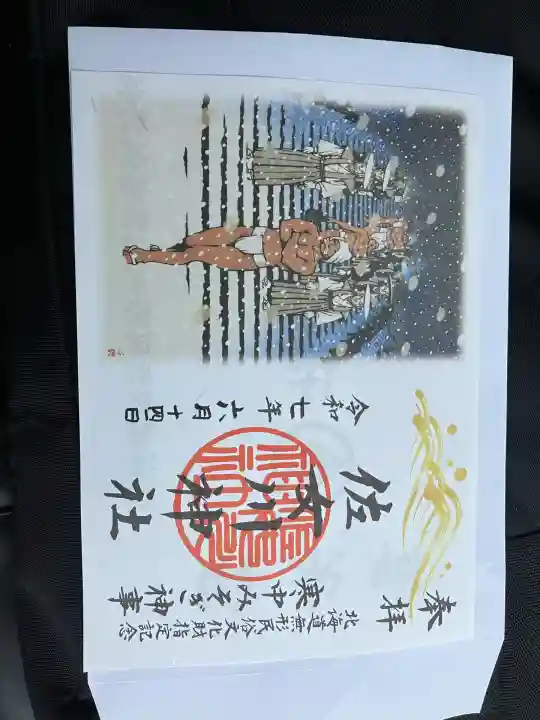 奉拝
北海道無形民俗文化財指定記念
寒中みそぎ神事
佐女川神社
令和七年六月十四日